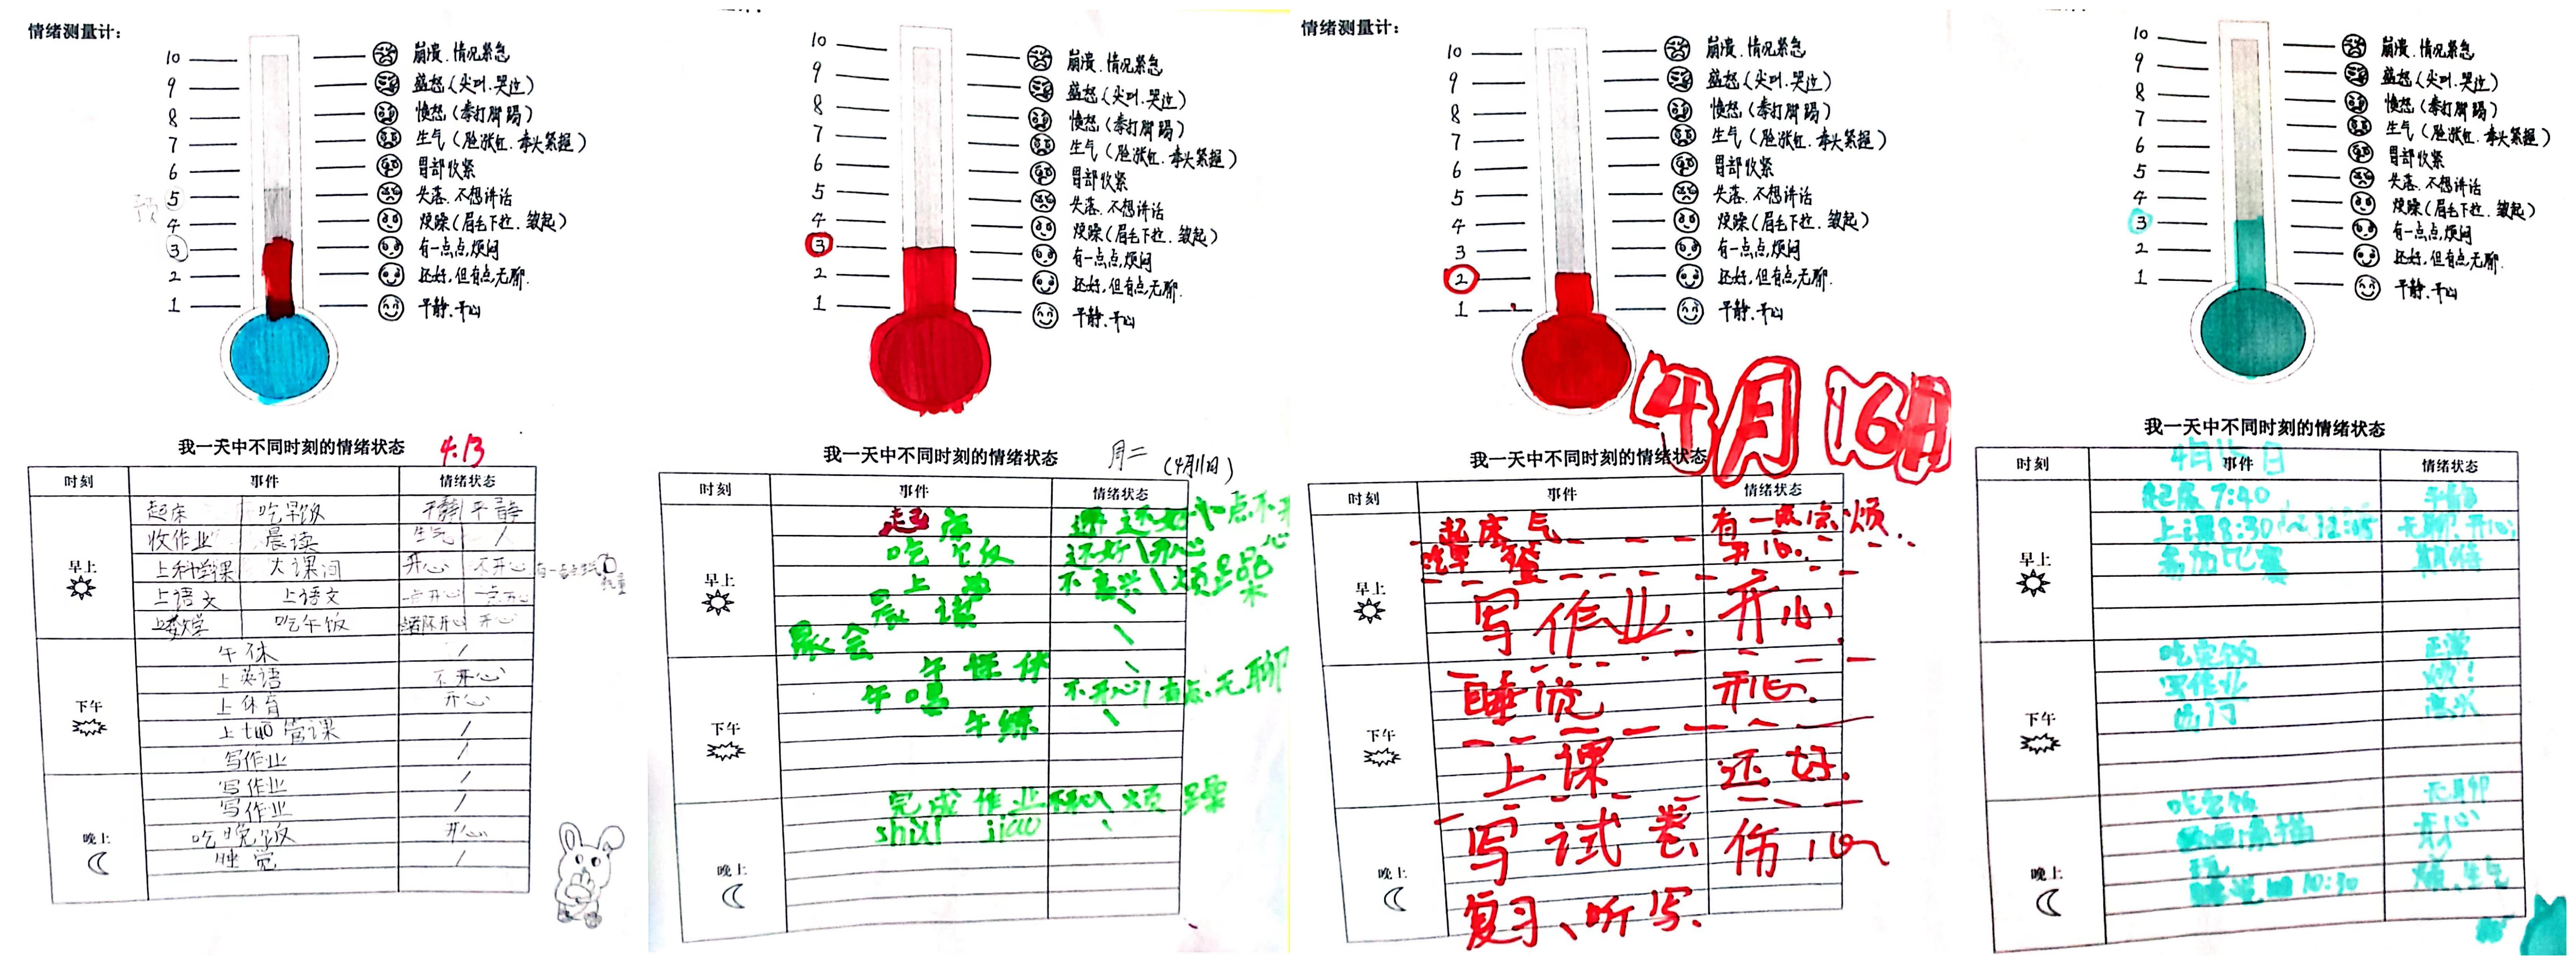 情绪测量计：
10 崩溃.情况紧急
9 盛怒(尖叫.哭泣)
8 愤怒(拳打脚踢)
7 生气(脸涨红.拳头紧握)
6 胃部收紧
5 失落.不想讲话
4 烦躁(眉毛下拉.皱起)
3 有一点点,烦闷
2 还好,但有点无聊.
1 平静.开心
我一天中不同时刻的情绪状态 4.13
时刻 事件 情绪状态
起床 吃早饭 平静 平静
收作业 晨读 生气 /
早上
上科学课 大课间 开心 不开心
上语文 上语文 一点开心 一点开心
上数学 吃午饭 开心
午休 /
上英语 不开心
下午
上体育 开心
上tuō管课 /
写作业 /
写作业 /
写作业 /
晚上
吃晚饭 开心
睡觉 /
10 崩溃.情况紧急
9 盛怒(尖叫.哭泣)
8 愤怒(拳打脚踢)
7 生气(脸涨红.拳头紧握)
6 胃部收紧
5 失落.不想讲话
4 烦躁(眉毛下拉.皱起)
3 有一点点,烦闷
2 还好,但有点无聊.
1 平静.开心
我一天中不同时刻的情绪状态 (4月11日)
时刻 事件 情绪状态
起床 还好
吃饭 还好\开心
早上
上学 不高兴\烦躁
晨读 \
晨会 \
午休 \
下午
不开心\有点无聊
午练 \
完成作业 烦躁
shuì jiào \
晚上
情绪测量计：
10 崩溃.情况紧急
9 盛怒(尖叫.哭泣)
8 愤怒(拳打脚踢)
7 生气(脸涨红.拳头紧握)
6 胃部收紧
5 失落.不想讲话
4 烦躁(眉毛下拉.皱起)
3 有一点点,烦闷
2 还好,但有点无聊.
1 平静.开心
4月16日
我一天中不同时刻的情绪状态
时刻 事件 情绪状态
起床气 有一点点烦.
吃早餐 开心.
早上
写作业. 开心.
睡觉 开心.
下午
上课 还好.
写试卷 伤心
晚上
复习、听写.
10 崩溃.情况紧急
9 盛怒(尖叫.哭泣)
8 愤怒(拳打脚踢)
7 生气(脸涨红.拳头紧握)
6 胃部收紧
5 失落.不想讲话
4 烦躁(眉毛下拉.皱起)
3 有一点点,烦闷
2 还好,但有点无聊.
1 平静.开心
我一天中不同时刻的情绪状态
4月15日
时刻 事件 情绪状态
起床 7:40 平静
上课8:30～12:05 无聊.开心
早上
参加比赛 期待
吃完饭 正常
写作业 烦!
下午
出门 高兴
吃完饭 无聊
开心
晚上
10:30 烦.生气